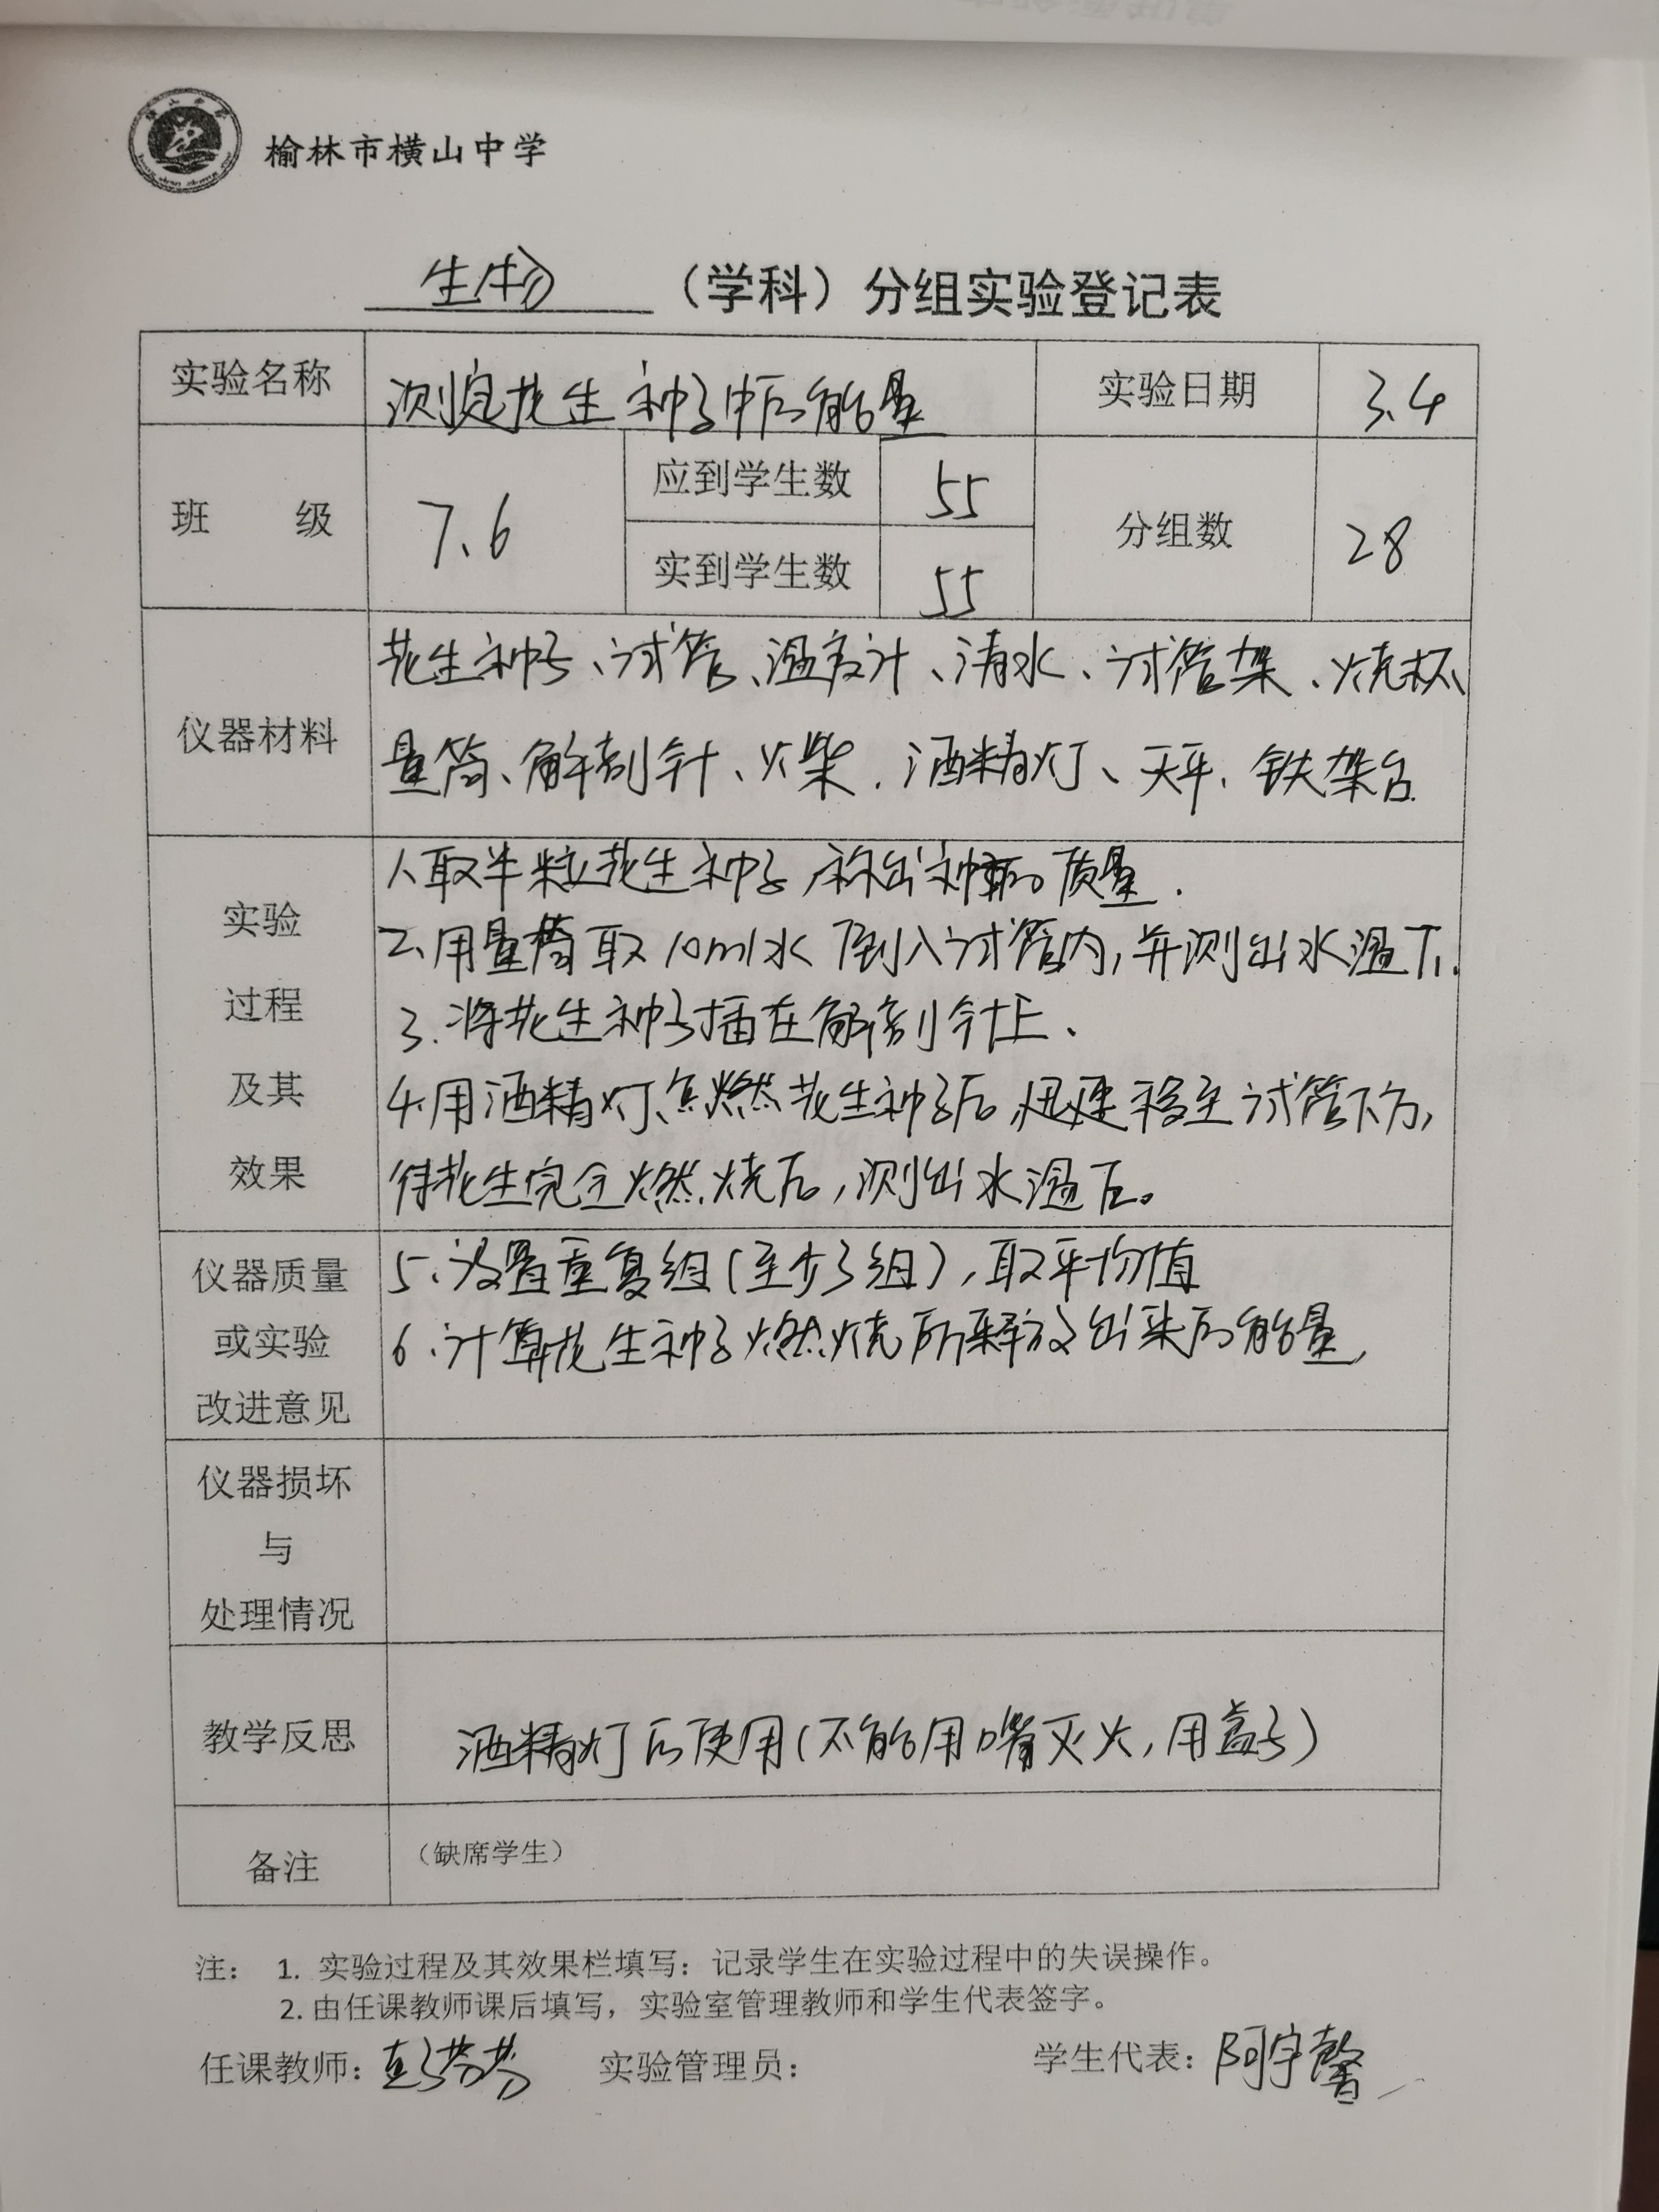 榆林市横山中学
生物 （学科）分组实验登记表
实验名称 测定花生种子中的能量 实验日期 3.4
班 级 7.6 应到学生数 55 分组数 28
实到学生数 55
仪器材料
花生种子、试管、温度计、清水、试管架、烧杯、
量筒、解剖针、火柴、酒精灯、天平、铁架台.
实验
过程
及其
效果
1、取半粒花生种子,称出种子的质量.
2、用量筒取10ml水倒入试管内,并测出水温T1.
3.将花生种子插在解剖针上、
4.用酒精灯点燃花生种子后,迅速移至试管下方,
待花生完全燃烧后,测出水温T2。
仪器质量
或实验
改进意见
5、设置重复组(至少3组),取平均值
6、计算花生种子燃烧所释放出来的能量,
仪器损坏
与
处理情况
教学反思 酒精灯的使用(不能用嘴灭火,用盖子)
备注 （缺席学生）
注： 1. 实验过程及其效果栏填写：记录学生在实验过程中的失误操作。
2. 由任课教师课后填写，实验室管理教师和学生代表签字。
任课教师：彭芳芳 实验管理员： 学生代表：宇馨